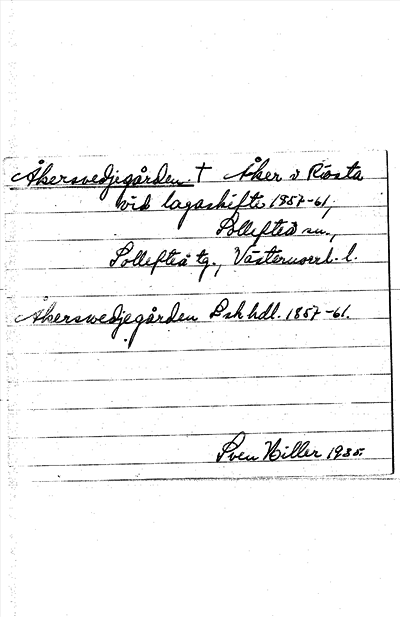 Åkersvedjegården. † Åker v Rösta
vid lagaskifte 1857-61,
Sollefteå sn.,
Sollefteå tg., Västernorrl. l.
Åkerswedjegården Lskhdl. 1857-61.
Sven Hiller 1935.